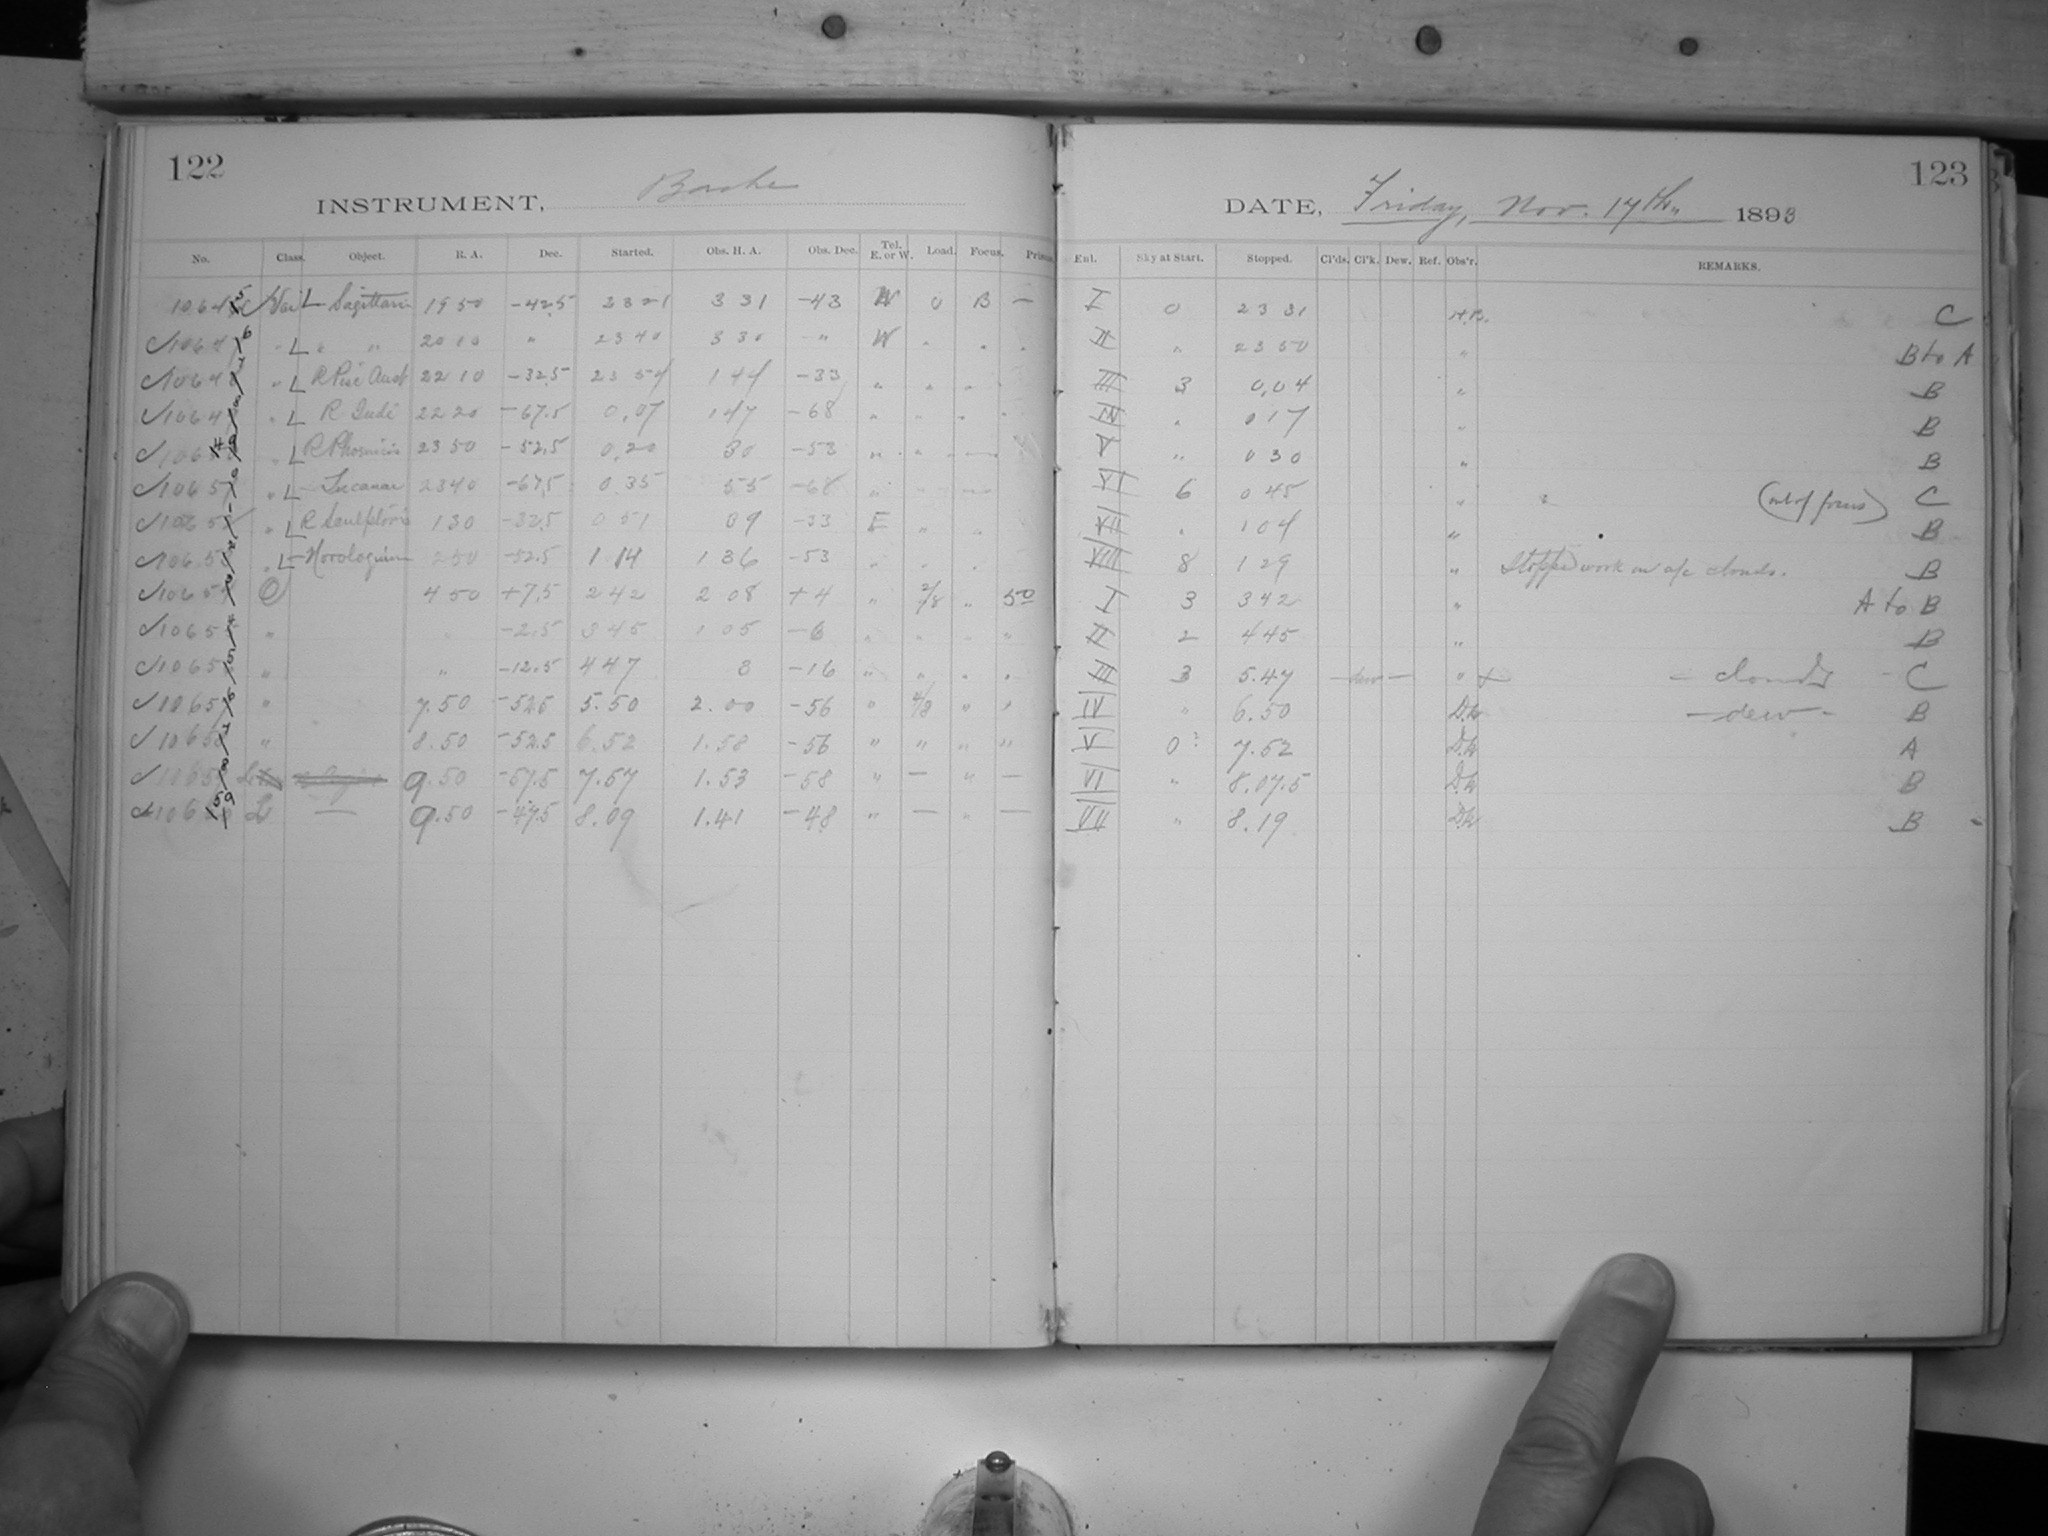 122
INSTRUMENT, Bache
No. Class. Object. R. A. Dec. Started. Obs. H. A. Obs. Dec. Tel. E. or W. Load. Focus. Prism.
L Sagittarii 19 50 -42.5 23 21 3 31 -43 W 0 B —
L " " 20 10 " 23 40 3 30 " W " " "
" L R Pisc Aust 22 10 -32.5 23 54 1 44 -33 " " " "
" L R Indi 22 20 -67.5 0.07 1 47 -68 " " " "
" L R Phoenicis 23 50 -52.5 0.20 30 -53 " " "
" L Tucanae 23 40 -67.5 0 35 55 -68 " " "
" L R Sculptoris 1 30 -32.5 0 51 09 -33 E " "
" L Horologium 2 50 -52.5 1 14 1 36 -53 " " "
O 4 50 +7.5 2 42 2 08 +4 " 2/8 " 50
" " -2.5 3 45 1 05 -6 " " " "
" " -12.5 4 47 3 -16 " " " "
" 7.50 -52.5 5.50 2.00 -56 " 4/8 " "
" 8.50 -52.5 6.52 1.58 -56 " " " "
9.50 -57.5 7.57 1.53 -58 " — " —
L — 9.50 -47.5 8.09 1.41 -48 " — " —
123
DATE, Friday, Nov. 17th, 1893
Ent. Sky at Start. Stopped. Cl'ds. Cl'k. Dew. Ref. Obs'r. REMARKS.
I 0 23 31 H.B. C
II " 23 50 " B to A
III 3 0,04 " B
IV " 0 17 " B
V " 0 30 " B
VI 6 0 45 " " (out of focus) C
VII " 1 04 " B
VIII 8 1 29 " Stopped work on a/c clouds. B
I 3 3 42 " A to B
II 2 4 45 " B
III 3 5.47 — dew — " — clouds - C
IV " 6.50 D.W — dew - B
V 0? 7.52 D.W A
VI " 8.07.5 D.W B
VII " 8.19 D.W B